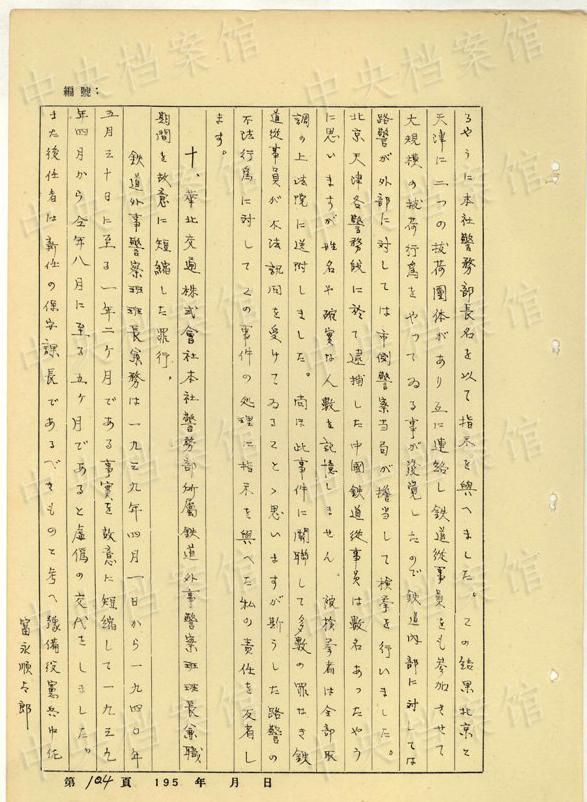 編號：
るやうに本社警務部長名を以て指示を與へました。この結果北京と
天津に二つの拔荷團体があり互に連絡し鉄道従事員をも参加させて
大規模の拔荷行爲をやつてゐる事が発覚したので鉄道内部に対しては
路警が外部に対しては市側警察当局が擔当して検挙を行いました。
北京天津各警務段に於て逮捕した中國鉄道従事員は数名あつたやう
に思いますが姓名や確実な人数を記憶しません。被検挙者は全部取
調の上法院に送附しました。尚ほ此事件に関聯して多数の罪なき鉄
道従事員が不法訊問を受けてゐることゝ思いますが斯うした路警の
不法行爲に対してこの事件の処理に指示を與へた私の責任を反省し
ます。
十、華北交通株式會社本社警務部所属鉄道外事警察班班長兼職
期間を故意に短縮した罪行。
鉄道外事警察班班長兼務は一九三九年四月一日から一九四〇年
五月三十日に至る一年二ケ月である事実を故意に短縮して一九三九
年四月から仝年八月に至る五ケ月であると虚偽の交代をしました。
また後任者は新任の保安課長であるべきものと考へ豫備役憲兵中佐
富永順太郎
第104頁 195 年 月 日
中央档案馆